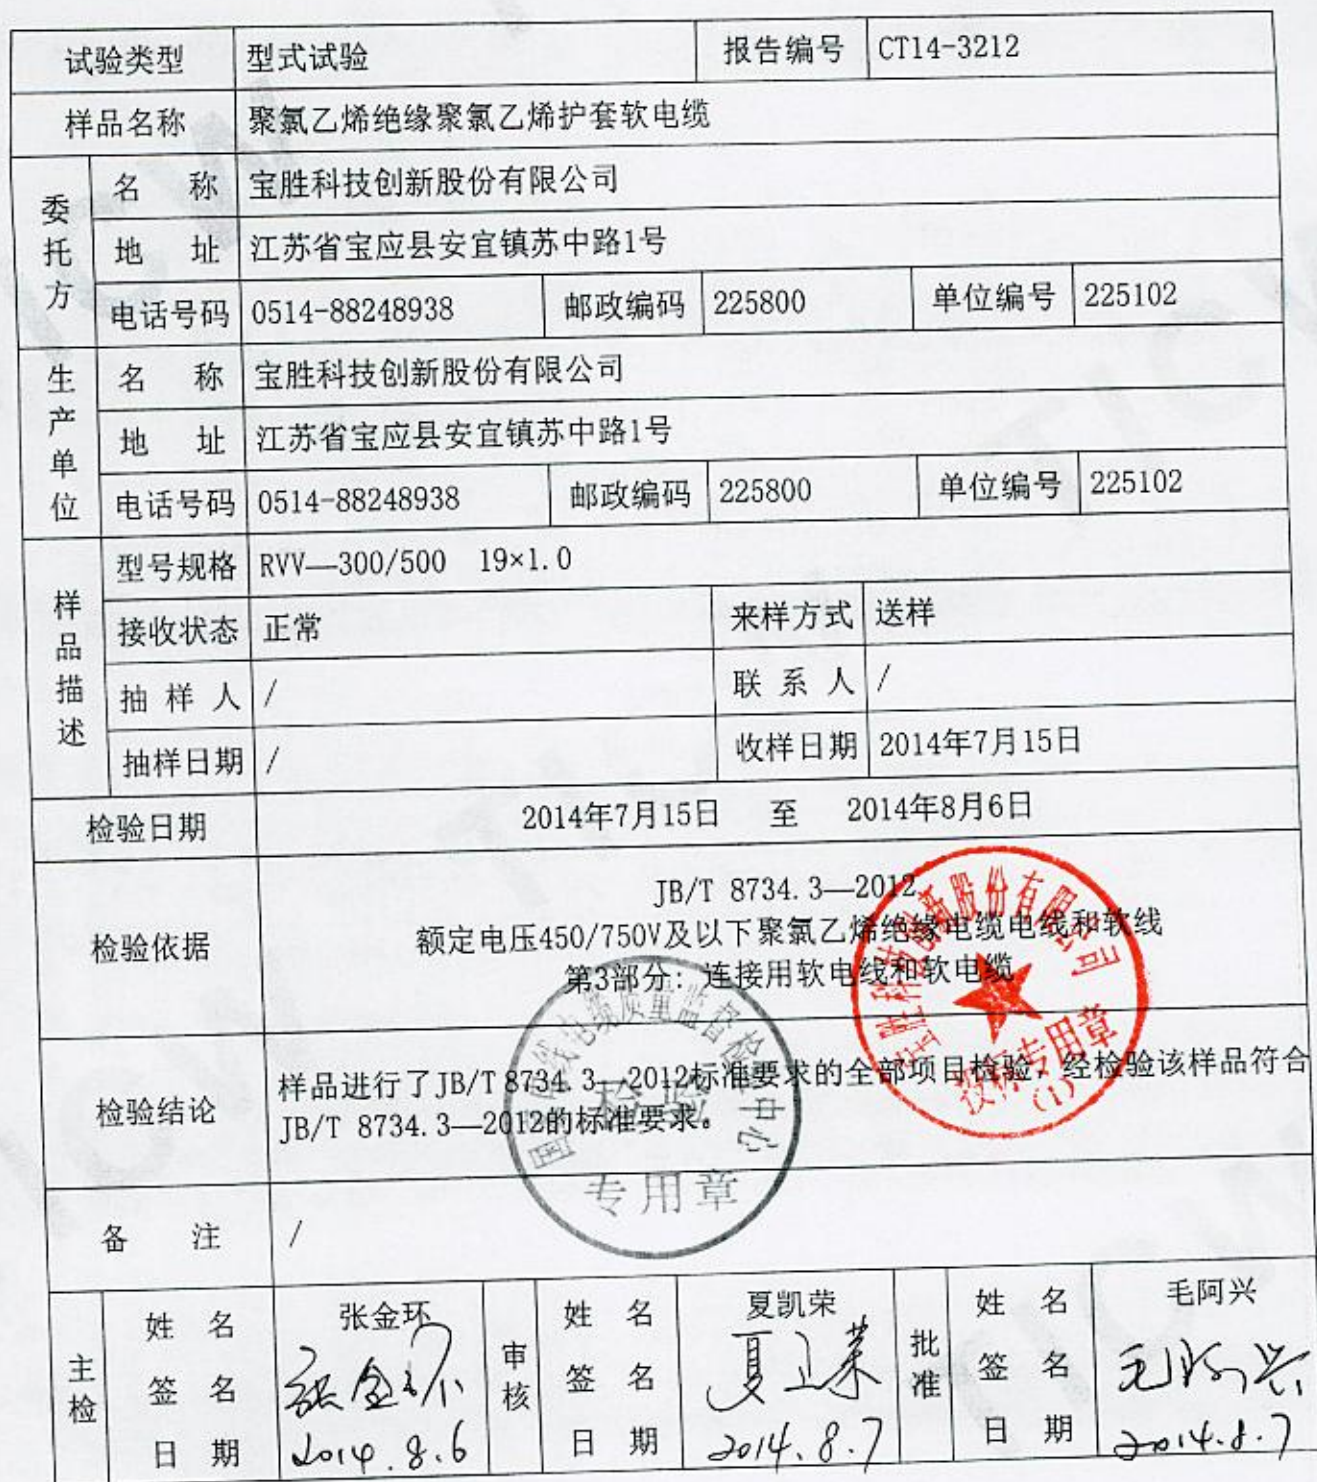 试验类型 型式试验 报告编号 CT14-3212
样品名称 聚氯乙烯绝缘聚氯乙烯护套软电缆
委托方
名 称 宝胜科技创新股份有限公司
地 址 江苏省宝应县安宜镇苏中路1号
电话号码 0514-88248938 邮政编码 225800 单位编号 225102
生产单位
名 称 宝胜科技创新股份有限公司
地 址 江苏省宝应县安宜镇苏中路1号
电话号码 0514-88248938 邮政编码 225800 单位编号 225102
样品描述
型号规格 RVV—300/500 19×1.0
接收状态 正常 来样方式 送样
抽样人 / 联系人 /
抽样日期 / 收样日期 2014年7月15日
检验日期 2014年7月15日 至 2014年8月6日
检验依据
JB/T 8734.3—2012
额定电压450/750V及以下聚氯乙烯绝缘电缆电线和软线
第3部分：连接用软电线和软电缆
宝胜科技创新股份有限公司
投标专用章
(1)
检验结论
样品进行了JB/T 8734.3—2012标准要求的全部项目检验，经检验该样品符合
JB/T 8734.3—2012的标准要求。
国家电线电缆质量监督检验中心
检验
专用章
备 注 /
主检 姓 名 张金环 审核 姓 名 夏凯荣 批准 姓 名 毛阿兴
签 名 张金环 签 名 夏凯荣 签 名 毛阿兴
日 期 2014.8.6 日 期 2014.8.7 日 期 2014.8.7